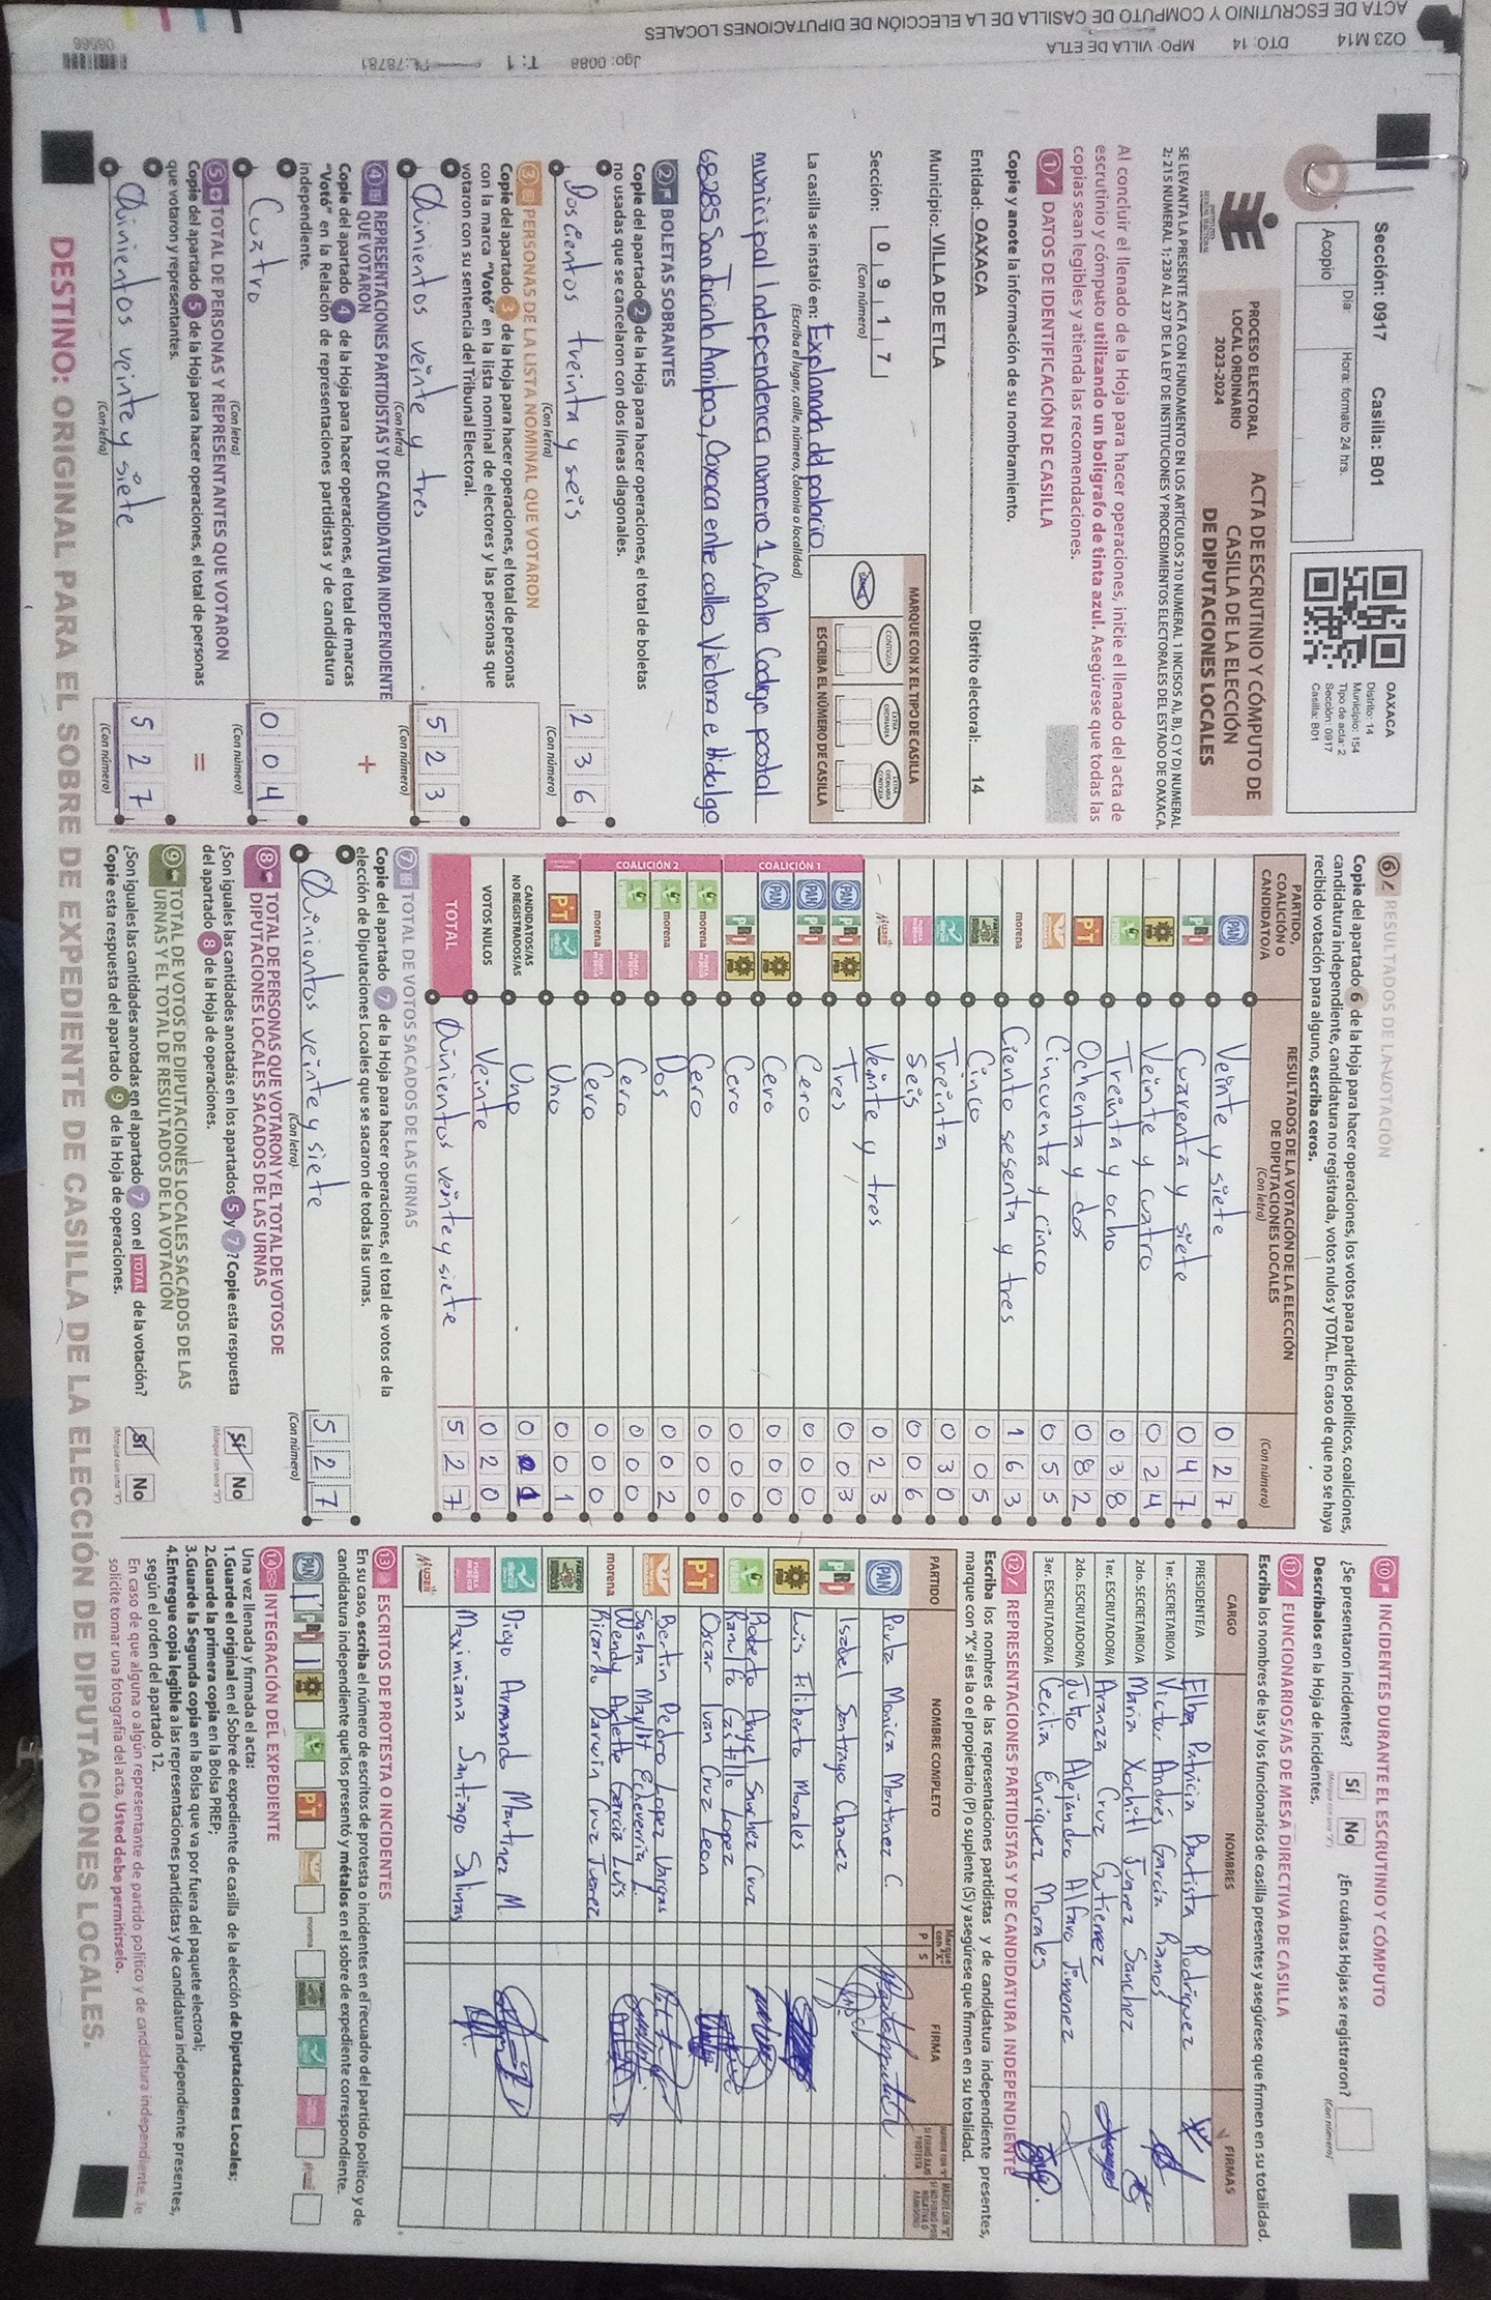 ACTA DE ESCRUTINIO Y CÓMPUTO DE CASILLA DE LA ELECCIÓN DE DIPUTACIONES LOCALES
O23 M14 DTO: 14 MPO: VILLA DE ETLA
Jgo: 0088 T: 1
Sección: 0917 Casilla: B01
Día: Hora: formato 24 hrs.
Acopio
OAXACA
Distrito: 14
Municipio: 154
Tipo de acta: 2
Sección: 0917
Casilla: B01
PROCESO ELECTORAL
LOCAL ORDINARIO
2023-2024
ACTA DE ESCRUTINIO Y CÓMPUTO DE
CASILLA DE LA ELECCIÓN
DE DIPUTACIONES LOCALES
SE LEVANTA LA PRESENTE ACTA CON FUNDAMENTO EN LOS ARTÍCULOS 210 NUMERAL 1 INCISOS A), B), C) Y D) NUMERAL
2; 215 NUMERAL 1; 230 AL 237 DE LA LEY DE INSTITUCIONES Y PROCEDIMIENTOS ELECTORALES DEL ESTADO DE OAXACA.
Al concluir el llenado de la Hoja para hacer operaciones, inicie el llenado del acta de
escrutinio y cómputo utilizando un bolígrafo de tinta azul. Asegúrese que todas las
copias sean legibles y atienda las recomendaciones.
1 DATOS DE IDENTIFICACIÓN DE CASILLA
Copie y anote la información de su nombramiento.
Entidad: OAXACA Distrito electoral: 14
Municipio: VILLA DE ETLA
Sección: 0 9 1 7
(Con número)
MARQUE CON X EL TIPO DE CASILLA
BÁSICA CONTIGUA EXTRAORDINARIA EXTRAORDINARIA CONTIGUA
ESCRIBA EL NÚMERO DE CASILLA
La casilla se instaló en: Explanada del palacio
(Escriba el lugar, calle, número, colonia o localidad)
municipal Independencia numero 1, Centro Codigo postal
68285 San Jacinto Amilpas, Oaxaca entre calles Victoria e Hidalgo
2 BOLETAS SOBRANTES
Copie del apartado 2 de la Hoja para hacer operaciones, el total de boletas
no usadas que se cancelaron con dos líneas diagonales.
Doscientos treinta y seis 2 3 6
(Con letra) (Con número)
3 PERSONAS DE LA LISTA NOMINAL QUE VOTARON
Copie del apartado 3 de la Hoja para hacer operaciones, el total de personas
con la marca "Votó" en la lista nominal de electores y las personas que
votaron con su sentencia del Tribunal Electoral.
Quinientos veinte y tres 5 2 3
(Con letra) (Con número)
4 REPRESENTACIONES PARTIDISTAS Y DE CANDIDATURA INDEPENDIENTE
QUE VOTARON +
Copie del apartado 4 de la Hoja para hacer operaciones, el total de marcas
"Votó" en la Relación de representaciones partidistas y de candidatura
independiente.
Cuatro 0 0 4
(Con letra) (Con número)
5 TOTAL DE PERSONAS Y REPRESENTANTES QUE VOTARON =
Copie del apartado 5 de la Hoja para hacer operaciones, el total de personas
que votaron y representantes.
Quinientos veinte y siete 5 2 7
(Con letra) (Con número)
6 RESULTADOS DE LA VOTACIÓN
Copie del apartado 6 de la Hoja para hacer operaciones, los votos para partidos políticos, coaliciones,
candidatura independiente, candidatura no registrada, votos nulos y TOTAL. En caso de que no se haya
recibido votación para alguno, escriba ceros.
PARTIDO,
COALICIÓN O
CANDIDATO/A
RESULTADOS DE LA VOTACIÓN DE LA ELECCIÓN
DE DIPUTACIONES LOCALES
(Con letra) (Con número)
PAN Veinte y siete 0 2 7
PRI Cuarenta y siete 0 4 7
PRD Veinte y cuatro 0 2 4
Treinta y ocho 0 3 8
PT Ochenta y dos 0 8 2
Cincuenta y cinco 0 5 5
morena Ciento sesenta y tres 1 6 3
Cinco 0 0 5
Treinta 0 3 0
Seis 0 0 6
Veinte y tres 0 2 3
COALICIÓN 1
PAN PRI PRD Tres 0 0 3
PAN PRI Cero 0 0 0
PAN PRD Cero 0 0 0
PRI PRD Cero 0 0 0
COALICIÓN 2
morena Cero 0 0 0
morena Dos 0 0 2
Cero 0 0 0
morena Cero 0 0 0
PT Uno 0 0 1
CANDIDATOS/AS
NO REGISTRADOS/AS Uno 0 0 1
VOTOS NULOS Veinte 0 2 0
TOTAL Quinientos veinte y siete 5 2 7
7 TOTAL DE VOTOS SACADOS DE LAS URNAS
Copie del apartado 7 de la Hoja para hacer operaciones, el total de votos de la
elección de Diputaciones Locales que se sacaron de todas las urnas.
Quinientos veinte y siete 5 2 7
(Con letra) (Con número)
8 TOTAL DE PERSONAS QUE VOTARON Y EL TOTAL DE VOTOS DE
DIPUTACIONES LOCALES SACADOS DE LAS URNAS
¿Son iguales las cantidades anotadas en los apartados 5 y 7? Copie esta respuesta
del apartado 8 de la Hoja de operaciones.
Sí No
9 TOTAL DE VOTOS DE DIPUTACIONES LOCALES SACADOS DE LAS
URNAS Y EL TOTAL DE RESULTADOS DE LA VOTACIÓN
¿Son iguales las cantidades anotadas en el apartado 7 con el TOTAL de la votación?
Copie esta respuesta del apartado 9 de la Hoja de operaciones.
Sí No
10 INCIDENTES DURANTE EL ESCRUTINIO Y CÓMPUTO
¿Se presentaron incidentes? Sí No ¿En cuántas Hojas se registraron?
(Con número)
Descríbalos en la Hoja de Incidentes.
11 FUNCIONARIOS/AS DE MESA DIRECTIVA DE CASILLA
Escriba los nombres de las y los funcionarios de casilla presentes y asegúrese que firmen en su totalidad.
CARGO NOMBRES FIRMAS
PRESIDENTE/A Elba Patricia Bautista Rodriguez
1er. SECRETARIO/A Victor Andrés García Ramos
2do. SECRETARIO/A Maria Xochitl Juarez Sanchez
1er. ESCRUTADOR/A Aranza Cruz Gutierrez
2do. ESCRUTADOR/A Julio Alejandro Alfaro Jimenez
3er. ESCRUTADOR/A Cecilia Enriquez Morales
12 REPRESENTACIONES PARTIDISTAS Y DE CANDIDATURA INDEPENDIENTE
Escriba los nombres de las representaciones partidistas y de candidatura independiente presentes,
marque con "X" si es la o el propietario (P) o suplente (S) y asegúrese que firmen en su totalidad.
PARTIDO NOMBRE COMPLETO Marque con "X" P S FIRMA
PAN Perla Monica Martinez C
PRI Isabel Santiago Chavez
PRD Luis Filiberto Morales
Roberto Angel Sanchez Cruz
Ranulfo Castillo Lopez
PT Oscar Ivan Cruz Leon
Bertin Pedro Lopez Vargas
Sasha Maylht Echeverria L.
morena Wendy Arlette Garcia Luis
Ricardo Darwin Cruz Juarez
Diego Armando Martinez M.
Maximiana Santiago Salinas
13 ESCRITOS DE PROTESTA O INCIDENTES
En su caso, escriba el número de escritos de protesta o incidentes en el recuadro del partido político y de
candidatura independiente que los presentó y métalos en el sobre de expediente correspondiente.
PAN PRI PRD PT morena
14 INTEGRACIÓN DEL EXPEDIENTE
Una vez llenada y firmada el acta:
1. Guarde el original en el Sobre de expediente de casilla de la elección de Diputaciones Locales;
2. Guarde la primera copia en la Bolsa PREP;
3. Guarde la Segunda copia en la Bolsa que va por fuera del paquete electoral;
4. Entregue copia legible a las representaciones partidistas y de candidatura independiente presentes,
según el orden del apartado 12.
En caso de que alguna o algún representante de partido político y de candidatura independiente, le
solicite tomar una fotografía del acta, Usted debe permitírselo.
DESTINO: ORIGINAL PARA EL SOBRE DE EXPEDIENTE DE CASILLA DE LA ELECCIÓN DE DIPUTACIONES LOCALES.